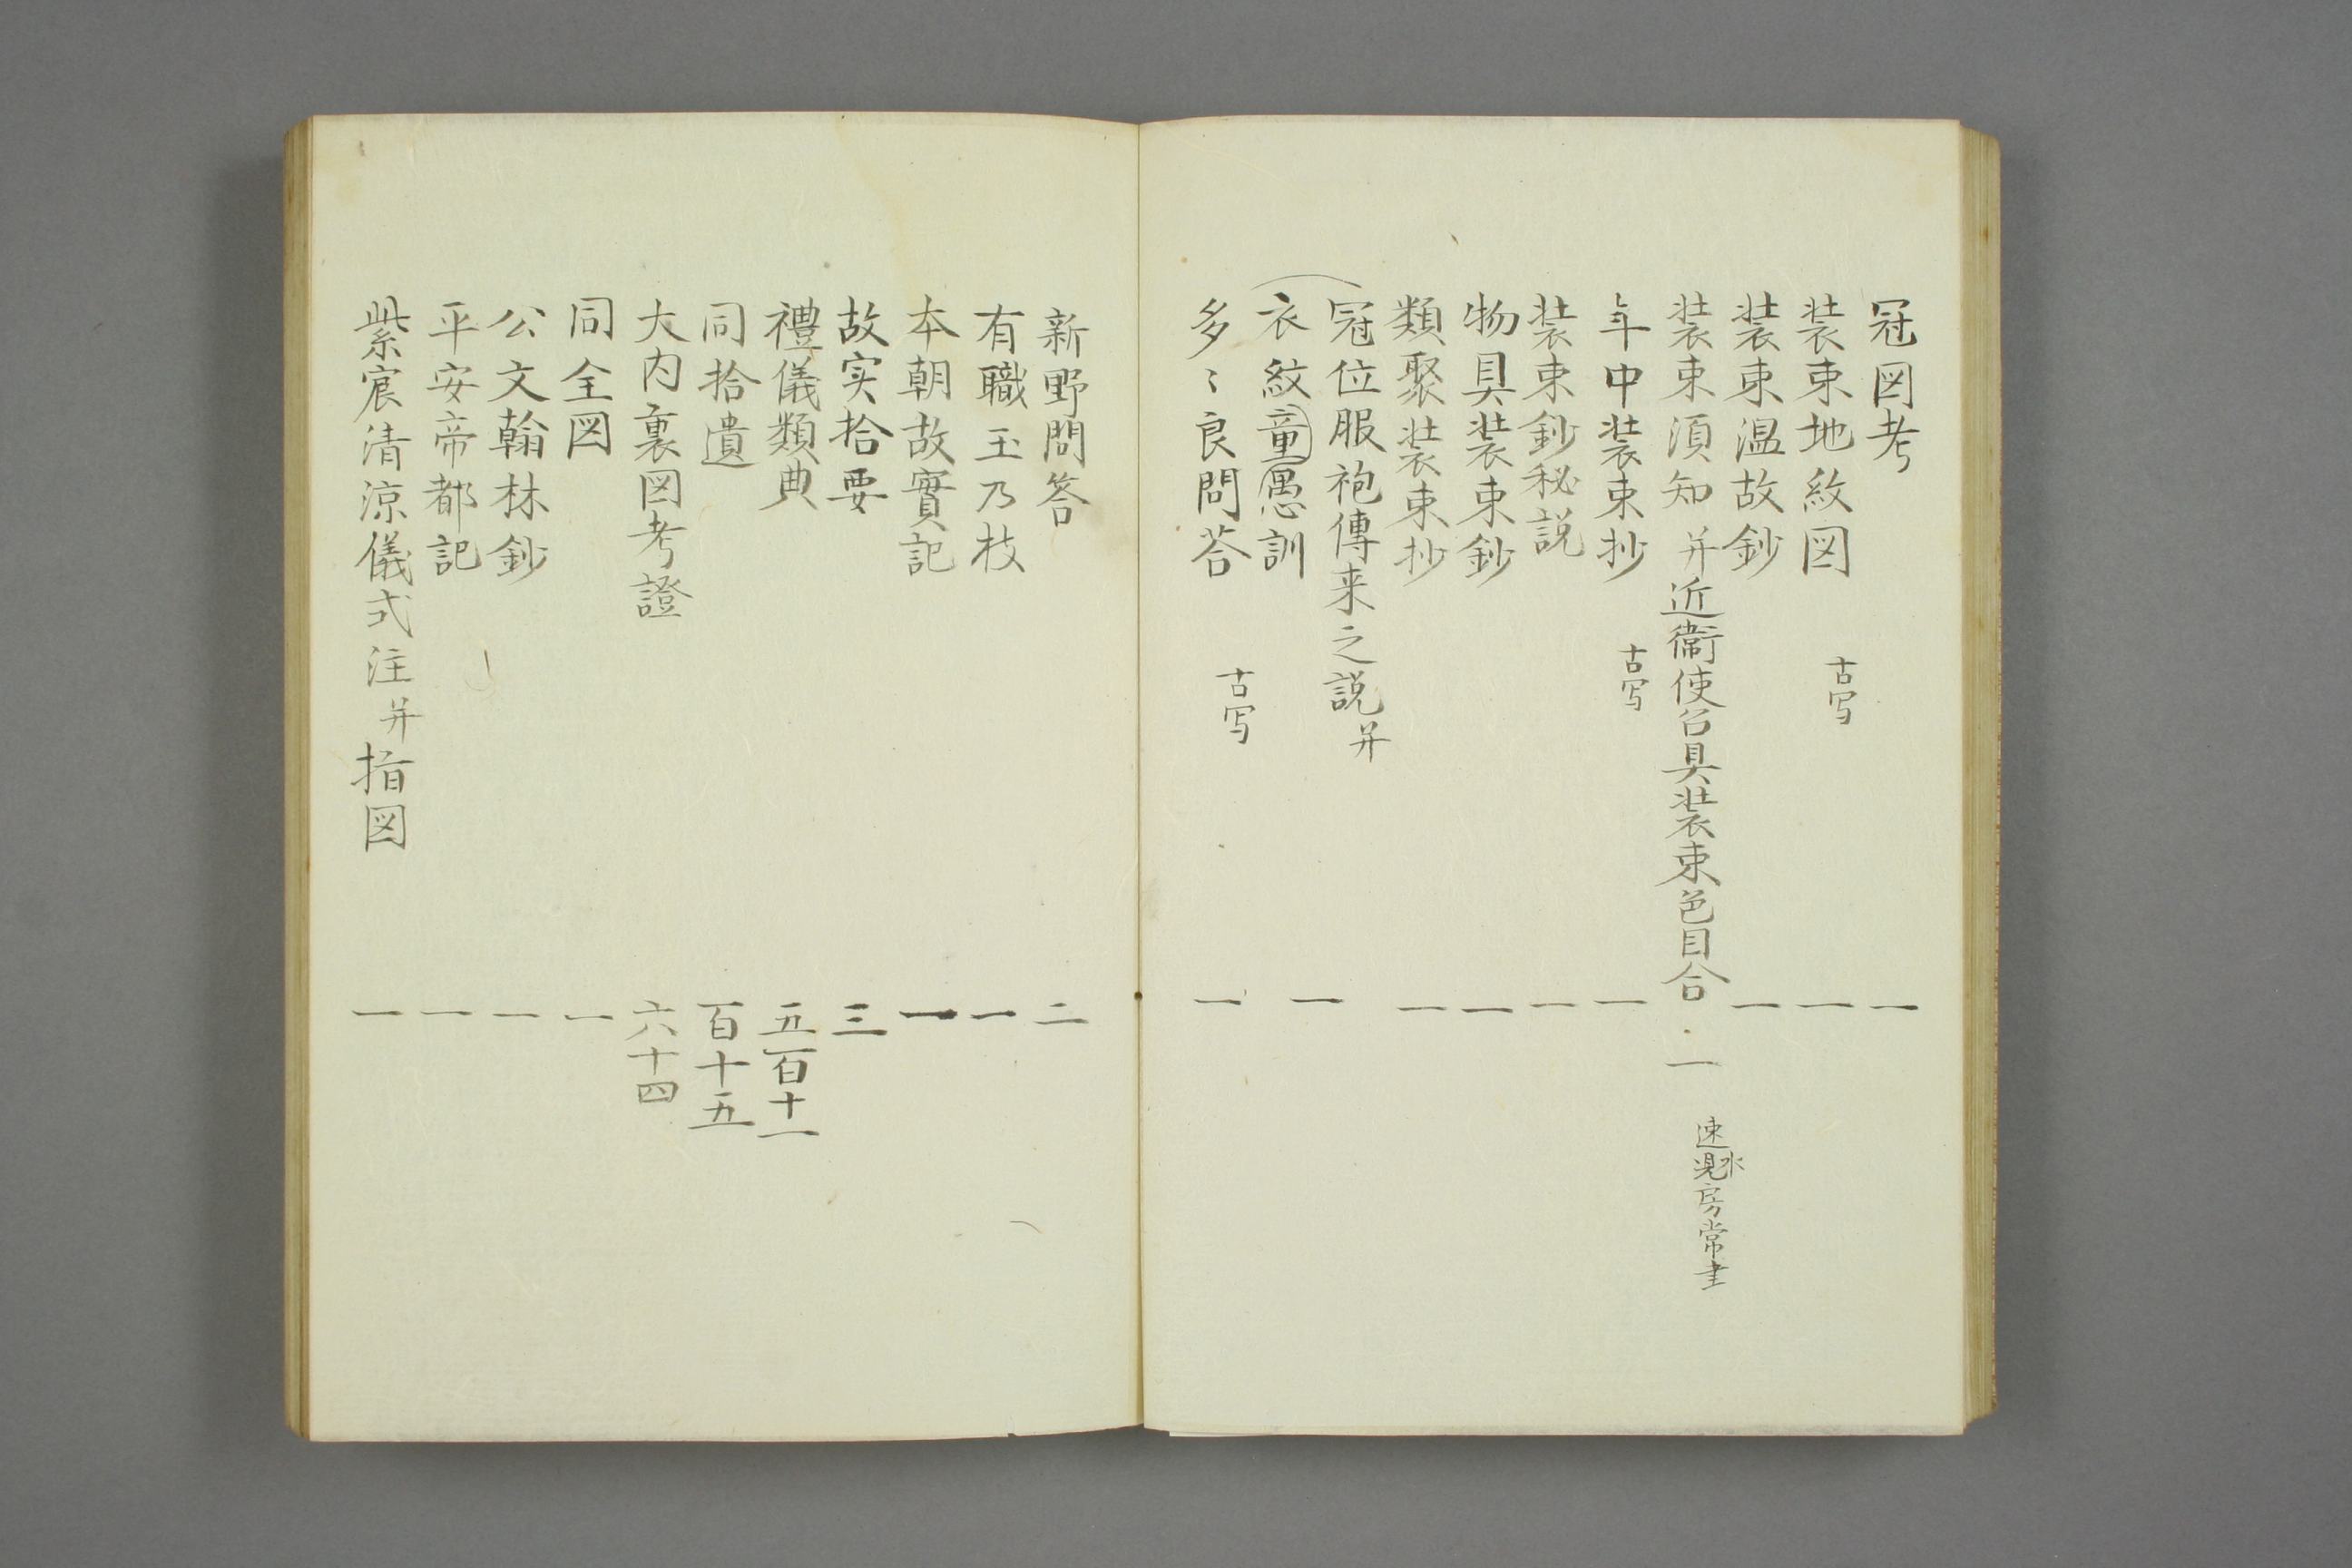 冠図考 一
装束地紋図 古写 一
装束温故鈔 一
装束須知并近衞使召具装束色目合 一 速水房常書
年中装束抄 古写 一
装束鈔秘説 一
物具装束鈔 一
類聚装束抄 一
冠位服袍傳来之説并
衣紋童愚訓 一
多〻良問荅 古写 一
新野問答 二
有職玉乃枝 一
本朝故實記 一
故実拾要 三
禮儀類典 五百十一
同拾遺 百十五
大内裏図考證 六十四
同全図 一
公文翰林鈔 一
平安帝都記 一
紫宸清涼儀式注并指図 一